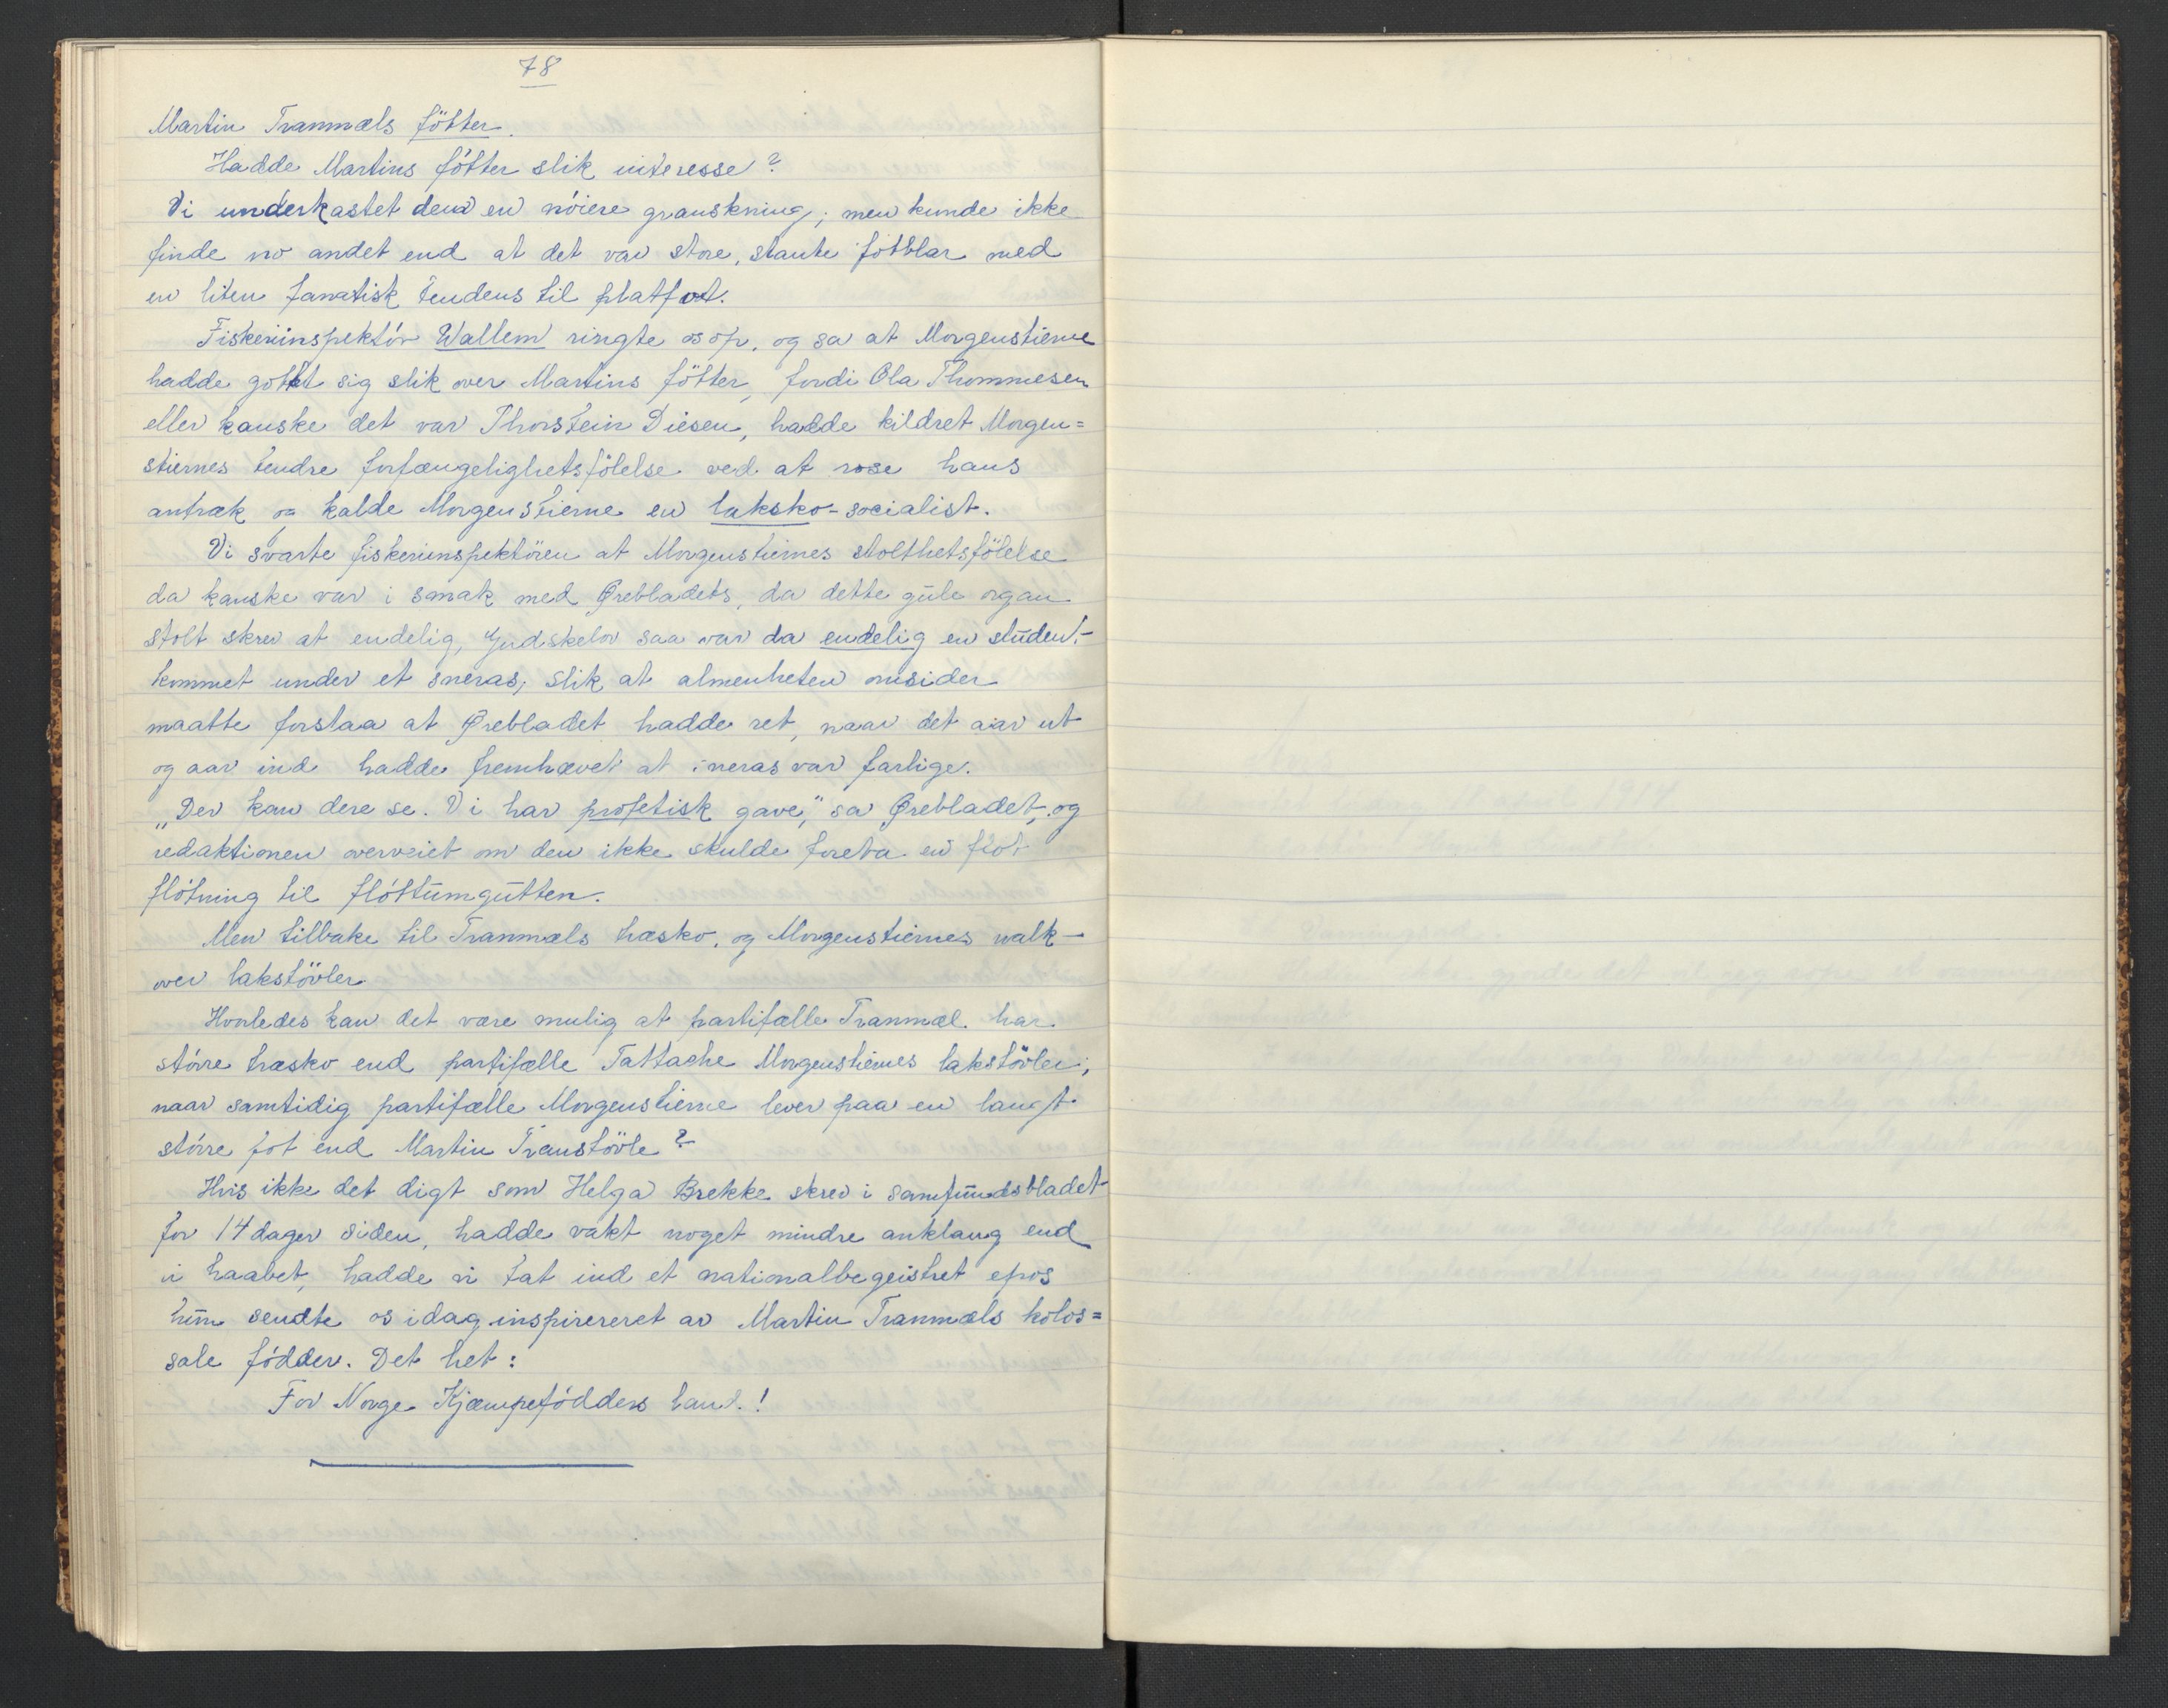 78
Martin Tranmæls føtter.
Hadde Martins føtter slik interesse?
Vi underkastet dem en nøiere granskning; men kunde ikke
finde no andet end at det var store, staute fotblar med
en liten fanatisk tendens til platfot.
Fiskeriinspektør Wallem ringte os op, og sa at Morgenstierne
hadde gottet sig slik over Martins føtter, fordi Ola Thommesen
eller kanske det var Thorstein Diesen, hadde kildret Morgen=
stiernes tendre forfængelighetsfølelse ved at rose hans
antræk og kalde Morgenstierne en laksko-socialist.
Vi svarte fiskeriinspektøren at Morgenstiernes stolthetsfølelse
da kanske var i smak med Ørebladets, da dette gule organ
stolt skrev at endelig, Gudskelov saa var da endelig en student
kommet under et sneras; slik at almenheten omsider
maatte forstaa at Ørebladet hadde ret, naar det aar ut
og aar ind hadde fremhævet at sneras var farlige.
„Der kan dere se. Vi har profetisk gave," sa Ørebladet, og
redaktionen overveiet om den ikke skulde foreta en flot
fløtning til fløttumgutten.
Men tilbake til Tranmæls træsko, og Morgenstiernes walk-
over lakstøvler.
Hvorledes kan det være mulig at partifælle Tranmæl har
større træsko end partifælle Tattache Morgenstiernes lakstøvler;
naar samtidig partifælle Morgenstierne lever paa en langt
større fot end Martin Transtøvle?
Hvis ikke det digt som Helga Brekke skrev i samfundsbladet
for 14 dager siden, hadde vakt noget mindre anklang end
vi haabet, hadde vi tat ind et nationalbegeistret epos
hun sendte os idag inspirereret av Martin Tranmæls kolos=
sale fødder. Det het:
For Norge Kjæmpefødders land.!